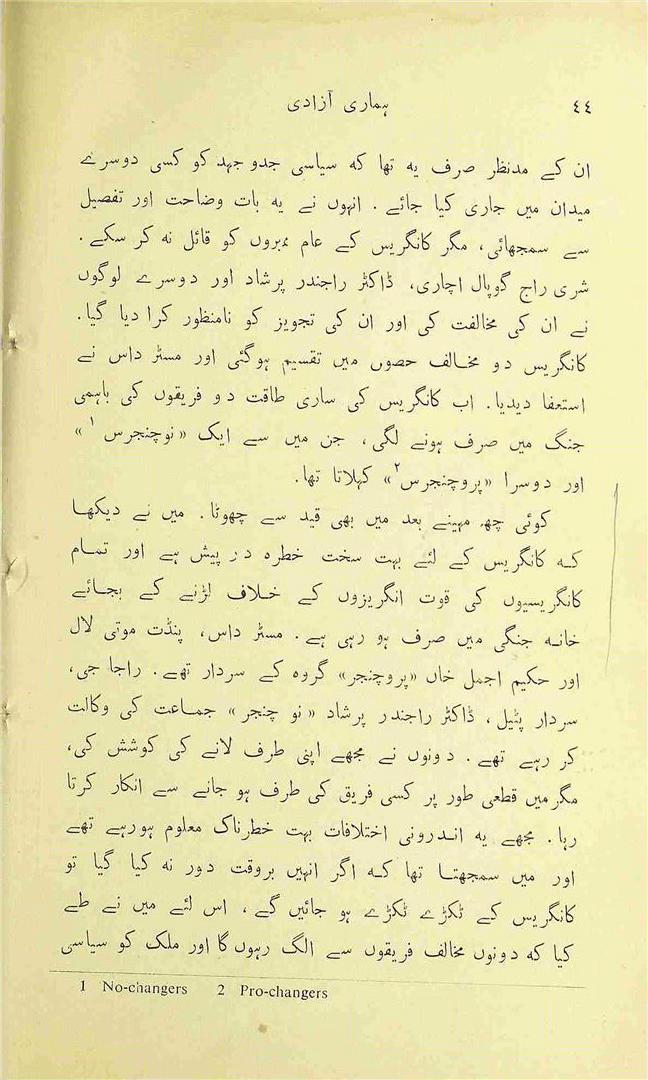 ٤٤
ہماری آزادی
ان کے مدنظر صرف یہ تھا کہ سیاسی جدوجہد کو کسی دوسرے
میدان میں جاری کیا جائے . انہوں نے یہ بات وضاحت اور تفصیل
سے سمجھائی، مگر کانگریس کے عام ممبروں کو قائل نہ کر سکے.
شری راج گوپال اچاری، ڈاکٹر راجندر پرشاد اور دوسرے لوگوں
نے ان کی مخالفت کی اور ان کی تجویز کو نامنظور کرا دیا گیا.
کانگریس دو مخالف حصوں میں تقسیم ہوگئی اور مسٹر داس نے
استعفا دیدیا. اب کانگریس کی ساری طاقت دو فریقوں کی باہمی
جنگ میں صرف ہونے لگی، جن میں سے ایک «نوچنجرس ¹ »
اور دوسرا «پروچنجرس²» کہلاتا تھا.
کوئی چھ مہینے بعد میں بھی قید سے چھوٹا. میں نے دیکھا
کہ کانگریس کے لئے بہت سخت خطرہ در پیش ہے اور تمام
کانگریسیوں کی قوت انگریزوں کے خلاف لڑنے کے بجائے
خانہ جنگی میں صرف ہو رہی ہے. مسٹر داس، پنڈت موتی لال
اور حکیم اجمل خاں «پروچنجر» گروہ کے سردار تھے. راجا جی،
سردار پٹیل، ڈاکٹر راجندر پرشاد «نو چنجر» جماعت کی وکالت
کر رہے تھے. دونوں نے مجھے اپنی طرف لانے کی کوشش کی،
مگر میں قطعی طور پر کسی فریق کی طرف ہو جانے سے انکار کرتا
رہا. مجھے یہ اندرونی اختلافات بہت خطرناک معلوم ہورہے تھے
اور میں سمجھتا تھا کہ اگر انہیں بروقت دور نہ کیا گیا تو
کانگریس کے ٹکڑے ٹکڑے ہو جائیں گے، اس لئے میں نے طے
کیا کہ دونوں مخالف فریقوں سے الگ رہوں گا اور ملک کو سیاسی
1 No-changers 2 Pro-changers